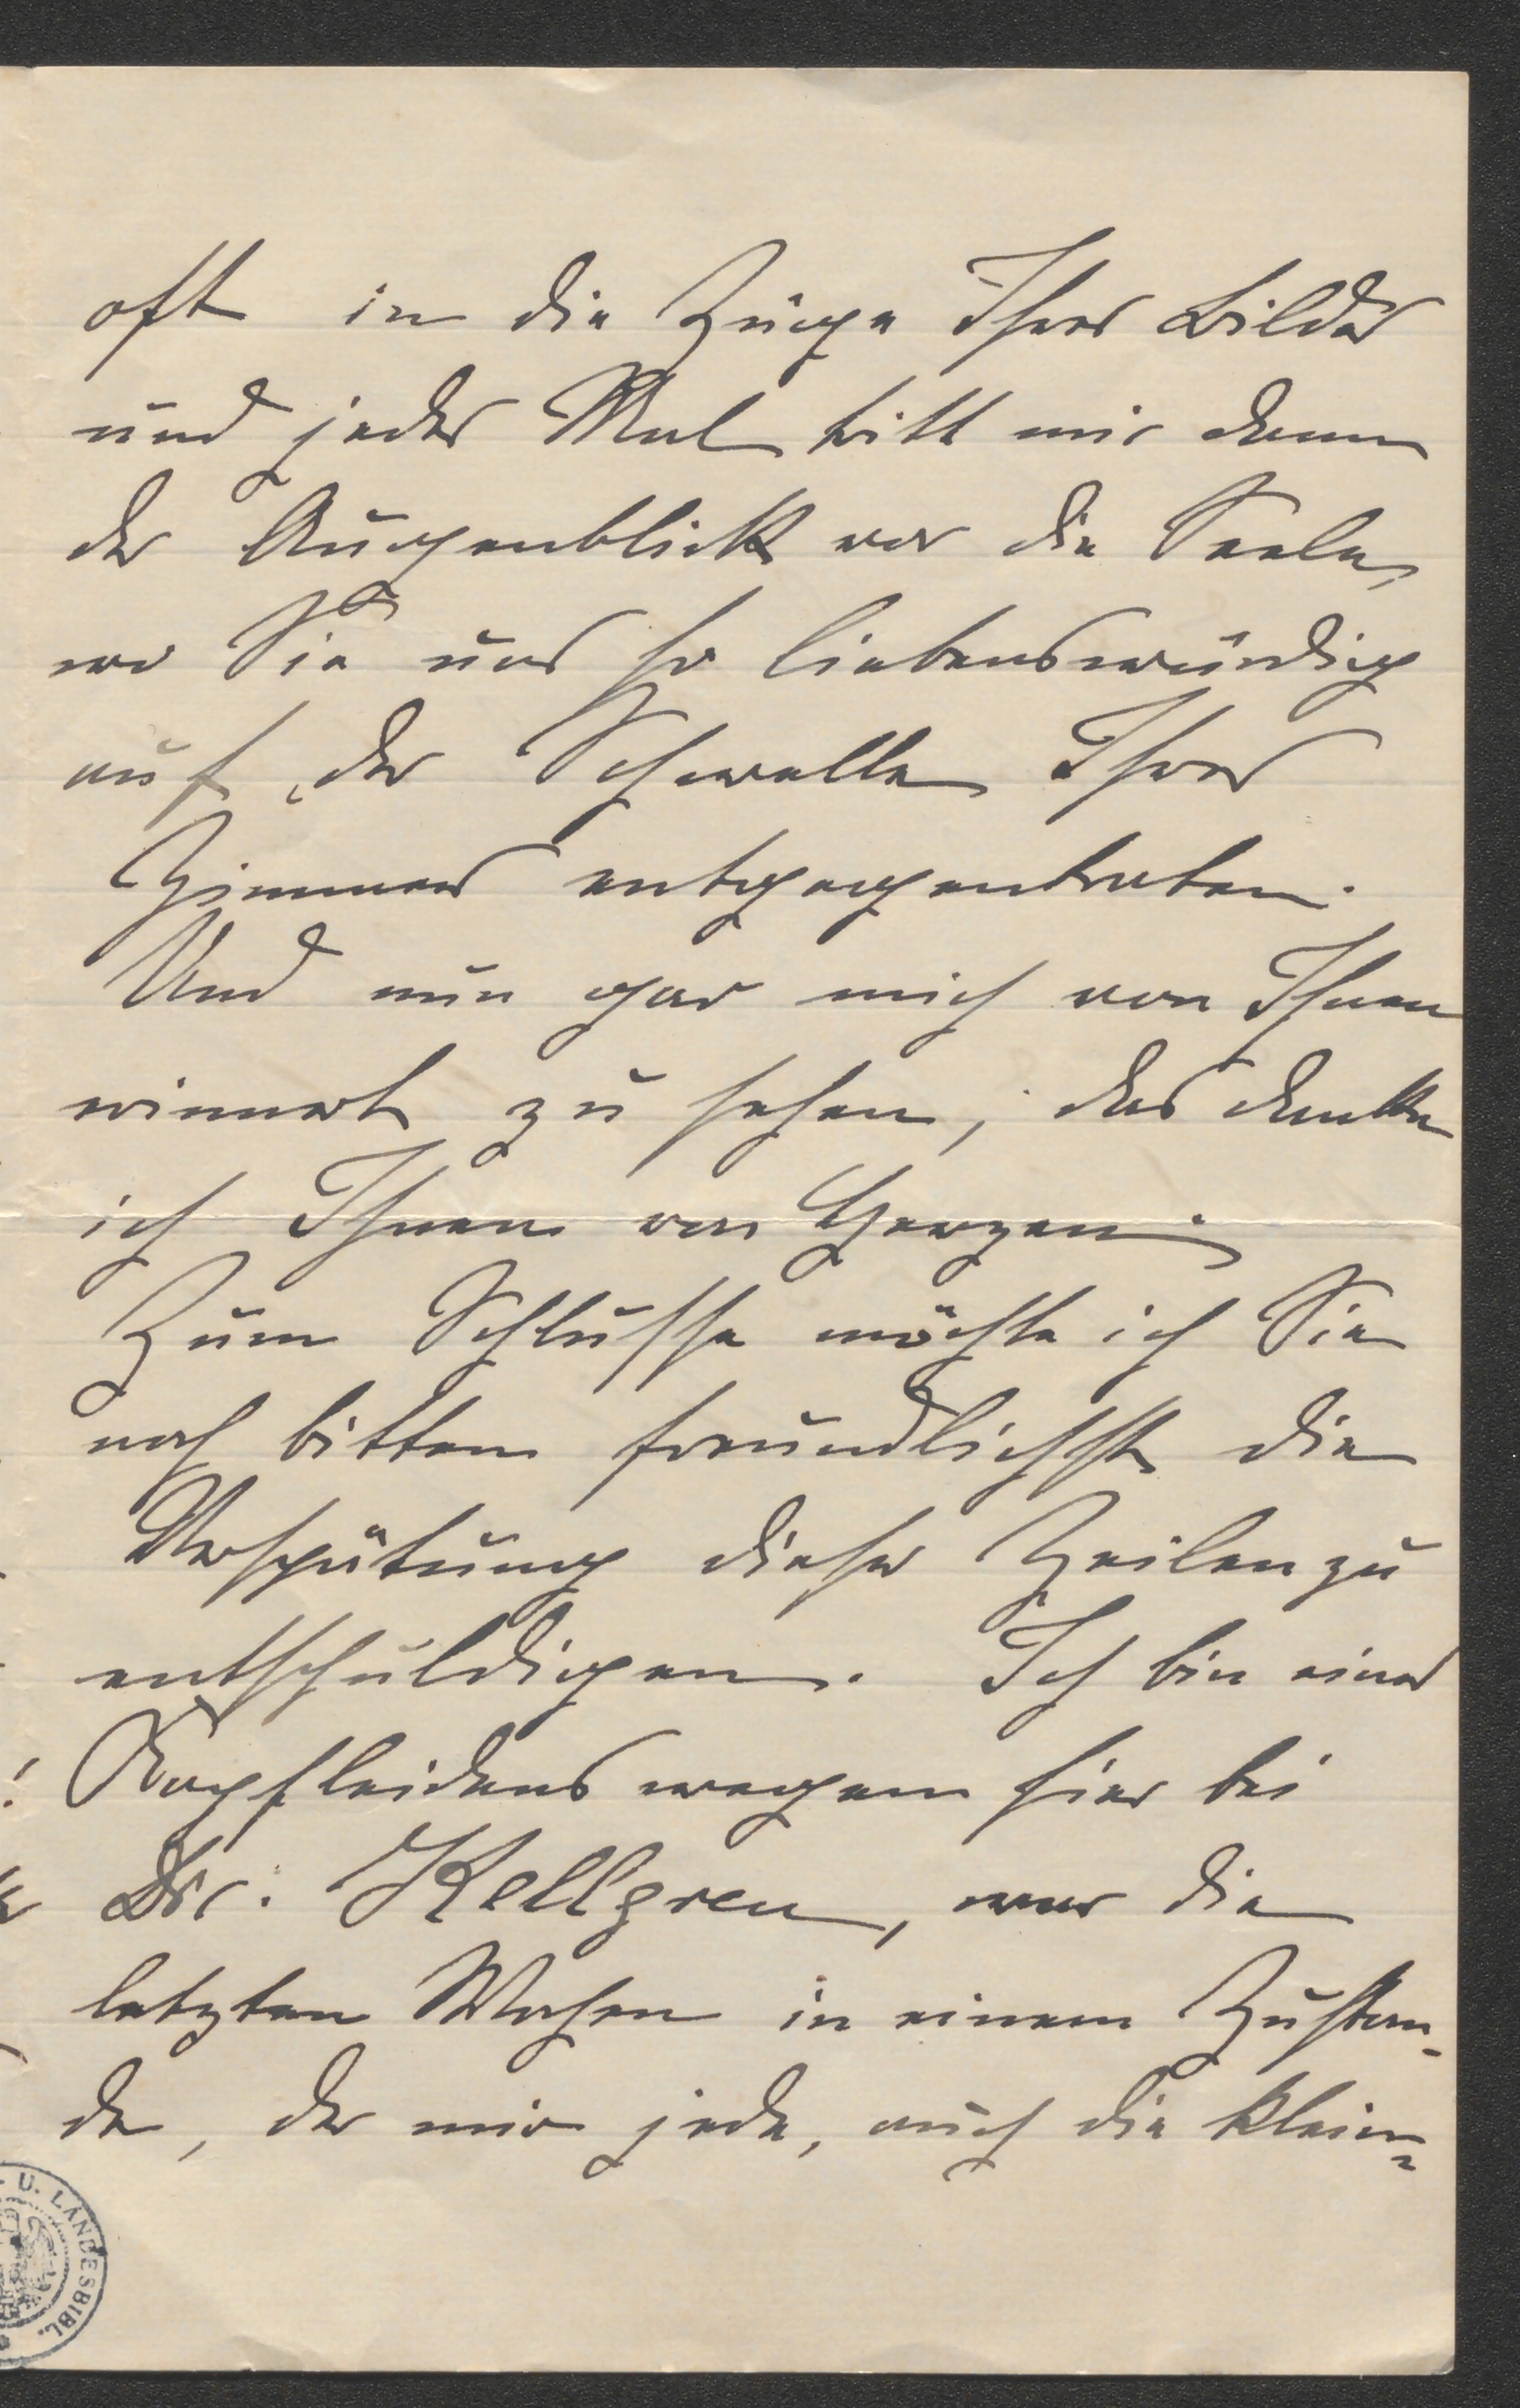 oft in die Züge Ihres Bildes
und jedes Mal tritt mir dann
der Augenblick vor die Seele,
wo Sie uns so liebenswürdig
auf der Schwelle Ihres
Zimmers entgegentraten.
Und nun gar mich von Ihnen
erinnert zu sehen, das danke
ich Ihnen von Herzen.
Zum Schlusse möchte ich Sie
noch bitten freundlichst die
Verspätung dieser Zeilen zu
entschuldigen. Ich bin eines
Kopfleidens wegen hier bei
Dr. Kellgren, war die
letzten Wochen in einem Zustan-
de, der mir jede, auch die klein-
U. LANDESBIBL.